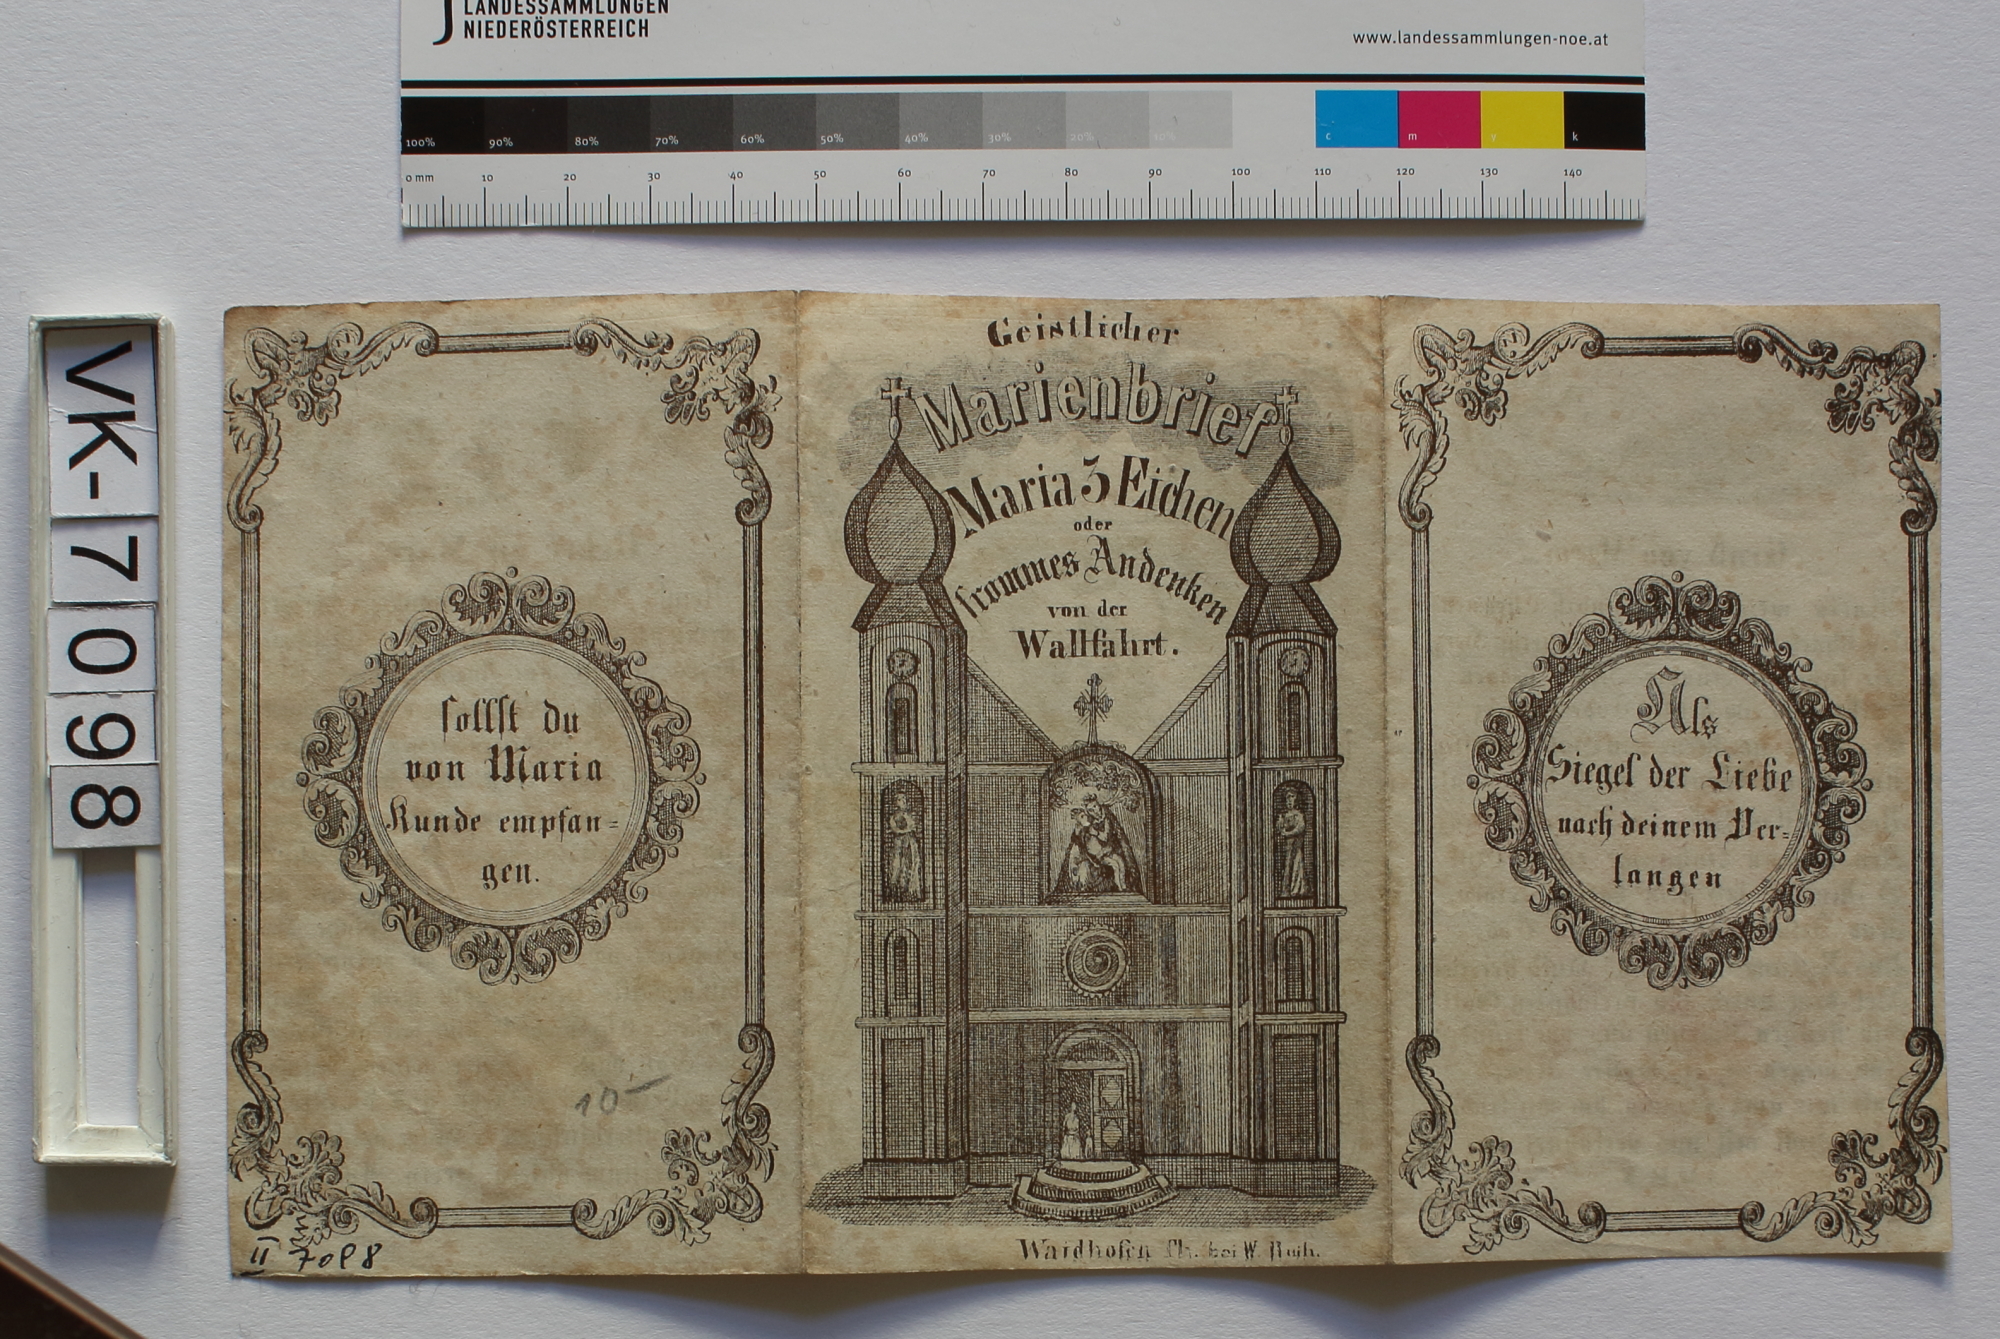 LANDESSAMMLUNGEN
NIEDERÖSTERREICH
www.landessammlungen-noe.at
100% 90% 80% 70% 60% 50% 40% 30% 20% 10% c m y k
0 mm 10 20 30 40 50 60 70 80 90 100 110 120 130 140
VK-7098
sollst du
von Maria
Kunde empfan=
gen.
10-
II 7098
Geistlicher
Marienbrief
Maria 3 Eichen
oder
frommes Andenken
von der
Wallfahrt.
Waidhofen Th. bei W.
Als
Siegel der Liebe
nach deinem Ver=
langen